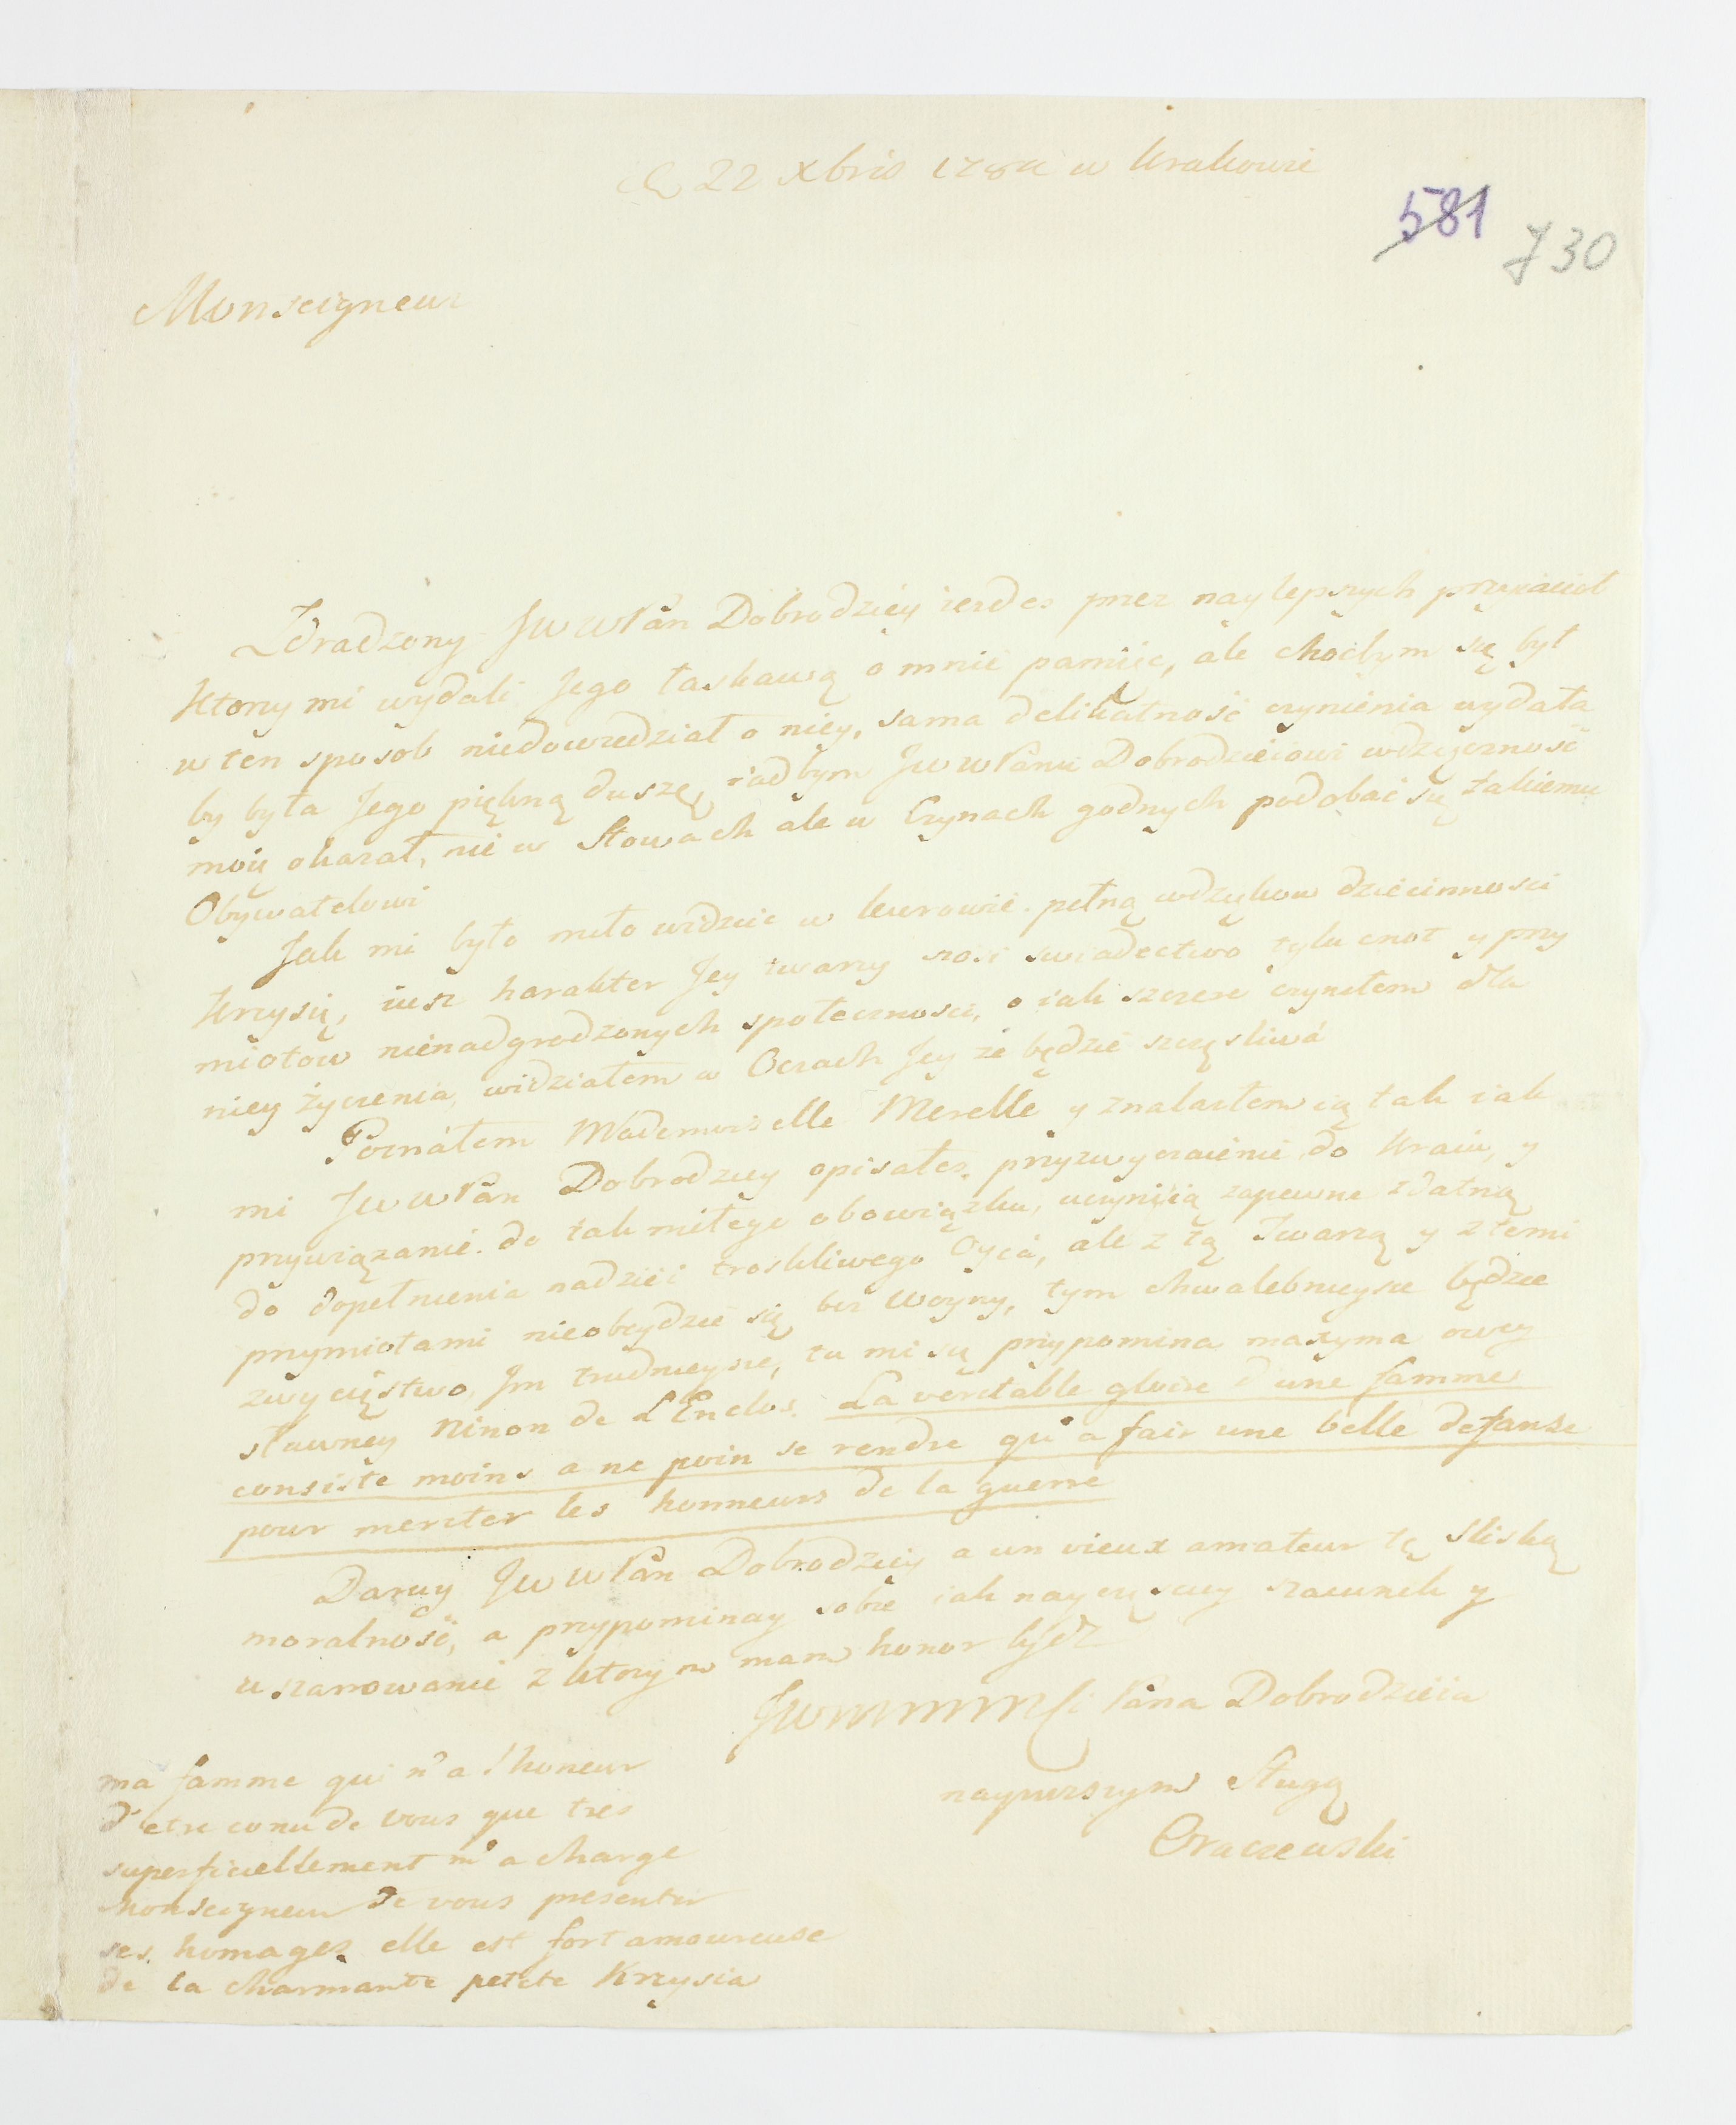 22 Xbris 178 w Krakowie
581 730
Monseigneur
Zdradzony JWWPan Dobrodziey iesdes przez naylepszych przyiaciol
Ktorzy mi wydali Jego łaskawą o mnie pamiic, ale chocbym się był
w ten sposob niedowiedział o niey, sama delikatność czynienia wydała
by była Jego piękną duszę, radbym JWWPanu Dobrodzieiowi wdzięczność
moię okazał, nie w Słowach ale w Czynach godnych podobać się takiemu
Obywatelowi
Jak mi było miło widziec w kurowie pełną wdzękow dziecinnosci
Krzysię, iusz harakter Jey twarzy nosi swiadectwo tylu cnot y przy
miotow nienadgrodzonych społecznosci, o iak szczere czyniłem dla
niey życzenia, widziałem w Oczach Jey że będzie szczęsliwá
Poznałem Mademoiselle Merelle y znalazłem ią tak iak
mi JWWPan Dobrodziey opisałes, przyzwyczaienie do Kraiu, y
przywiązanie do tak miłego obowiązku, uczynią ią zapewne zdatną
do dopełnienia nadzieii troskliwego Oyca, ale z tą Twarzą y z temi
przymiotami nieobeydzie się bez Woyny, tym chwalebnieysze będzie
zwycięstwo Im trudnieysze, tu mi się przypomina maxyma owey
sławney Ninon de L'Enclos. La veritable gloire d'une famme
consiste moins a ne poin se rendre qu'a fair une belle defanse
pour meriter les honneurs de la guerre
Daruy JWWPan Dobrodziey a un vieux amateur tę sliską
moralność, a przypominay sobie iak nayczęsciey szacunek y
uszanowanie z ktorym mam honor bydz
Pana Dobrodzieia
nayniższym Sługą
Oraczewski
ma famme qui n'a l'honeur
d'etre conu de vous que tres
superficiellement m'a charge
Monseigneur de vous presenter
ses homages elle est fort amoureuse
de la charmante petite Krzysia